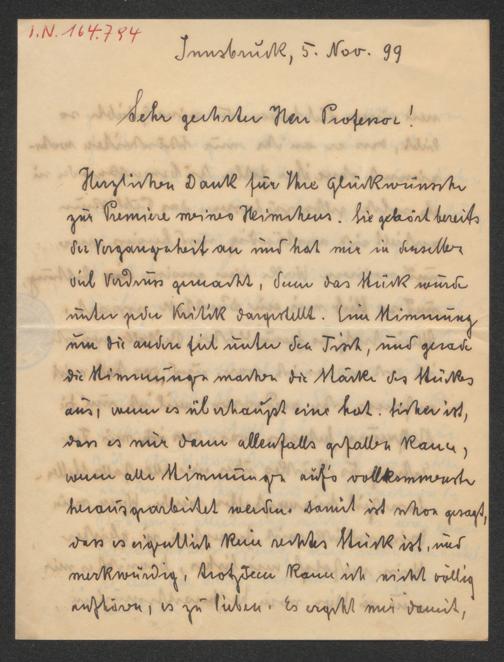 I.N. 164.794
Innsbruck, 5. Nov. 99
Sehr geehrter Herr Professor!
Herzlichen Dank für Ihre Glückwünsche
zur Premiere meines Heimchens. Sie gehört bereits
der Vergangenheit an und hat mir in derselben
viel Verdruss gemacht, denn das Stück wurde
unter jeder Kritik dargestellt. Eine Stimmung
um die andere fiel unter den Tisch, und gerade
die Stimmungen machen die Stärke des Stückes
aus, wenn es überhaupt eine hat. Sicher ist,
dass es nur dann allenfalls gefallen kann,
wenn alle Stimmungen aufs vollkommenste
herausgearbeitet werden. Damit ist schon gesagt,
dass es eigentlich kein rechtes Stück ist, und
merkwürdig, trotzdem kann ich nicht völlig
aufhören, es zu lieben. Es ergeht mir damit,